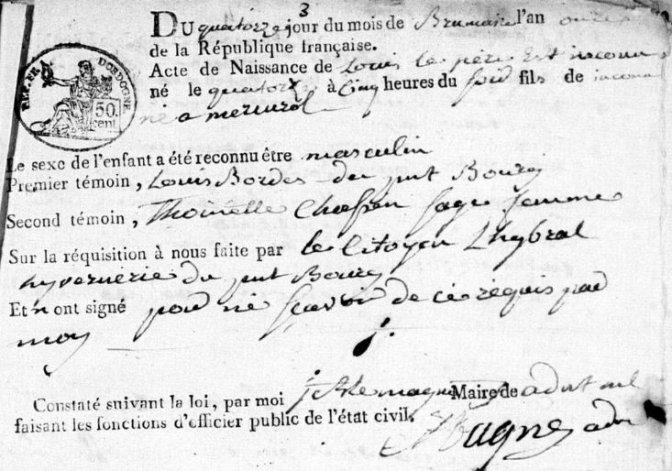 3
DU quatorze jour du mois de Brumaire l'an onze
de la République française.
Acte de Naissance de Louis le père Est inconu
né le quatorze à Cinq heures du soir fils de inconu
né a
REP. FRA. DORDOGNE
50.
cent
Le sexe de l'enfant a été reconnu être masculin
Premier témoin, Louis Bordes du Bourg
Second témoin, Thoinette sage femme
Sur la réquisition à nous faite par le Citoyen Lhybral
du Bourg
Et n ont signé pour ne scavoir de ce requis par
moy
Constaté suivant la loi, par moi Maire de
faisant les fonctions d'officier public de l'état civil.